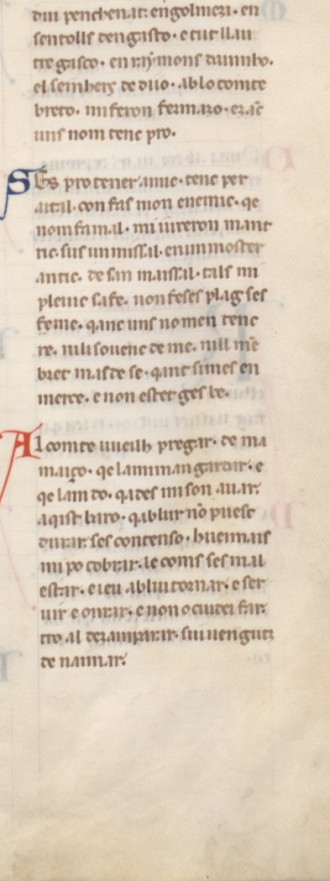 dui penchenat. engolmezi. en
sentolls dengasto. e tut llau
tre gasco. en raymons daui��o.
el senhers de duo. ablo comte
breto. mi feron fermazo. ez ãc
uns nom tenc pro.
Ses pro tener amic. tenc per
aital. con fas mon enemic. qe
nom fa mal. mi iureron man
tic. sus un missal. en un moster
antic. de sin massal. tals mi
plenic sa fe. non feses plag ses
feme. qanc uns no men tenc
re. ni li souenc de me. ni ll mẽ
bret mas de se. qant si mes en
merce. e non ester ges be.
Al comte vueilh pregar. de ma
maizo. qe la mi man gardar. e
qe lam do. qades mi son auar.
aqist baro. qab lur nõ puesc
durar. ses contenso. hueimais
mi po cobrar. lo coms ses mal
estar. e ieu ab lui tornar. e ser
uir e onrar. e non o ciudei far.
tro al dezamparar. sui uengutz
de naimar.